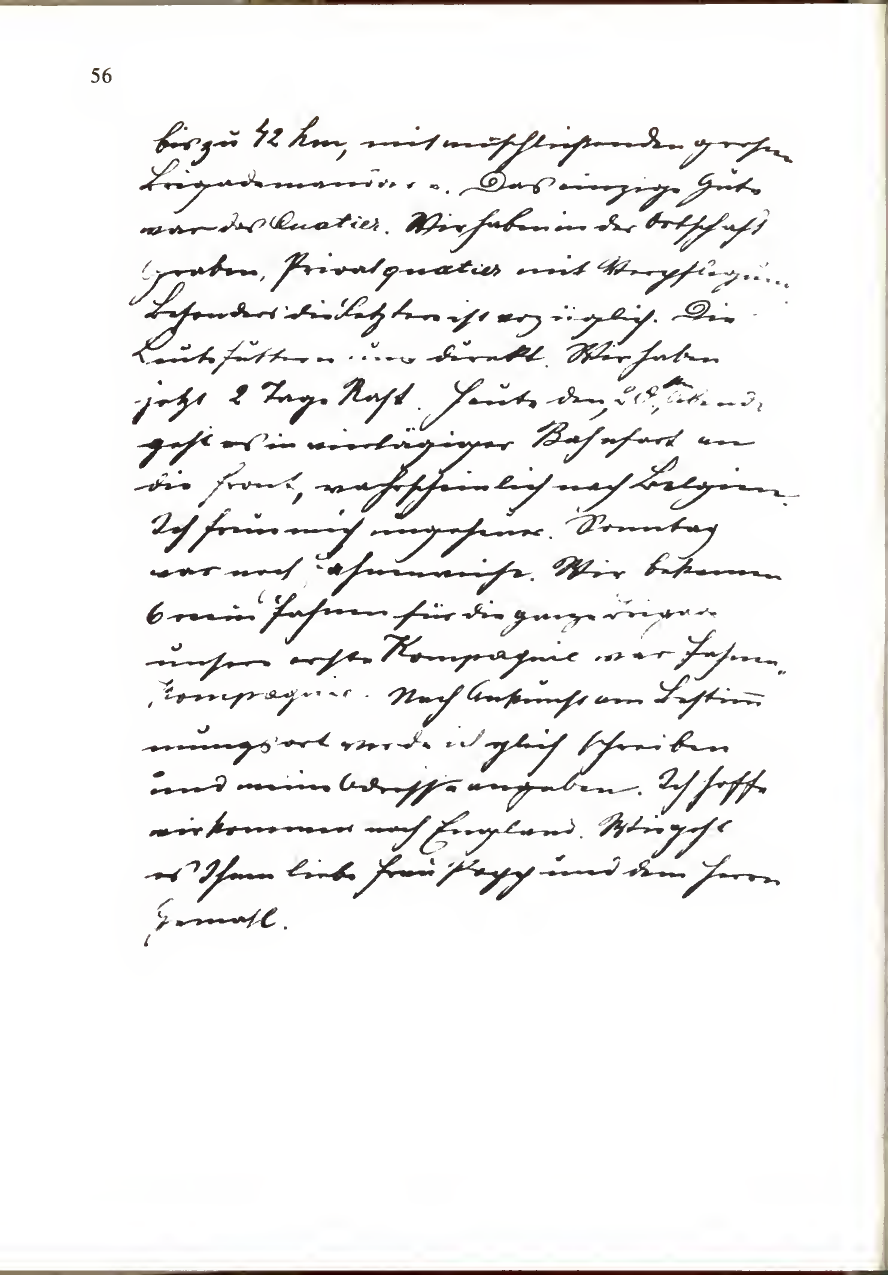 56
bis zu 42 km, mit anschließenden großen
Brigademanöver. Das einzige Gute
war das Quatier. Wir haben in der Ortschaft
Graben, Privatquatier mit Verpflegung
Besonders die letztere ist vorzüglich. Die
Leute füttern uns direkt. Wir haben
jetzt 2 Tage Rast. Heute den, 20., Abends
geht es in viertägiger Bahnfart an
die Front, wahrscheinlich nach Belgien.
Ich freue mich ungeheuer. Sonntag
war noch Fahnenweihe. Wir bekamen
6 neue Fahnen für die ganze Brigade
unsere erste Kompagnie war Fahnen-
kompagnie. Nach Ankunft am Bestim̅
mungsort werde ich gleich schreiben
und meine Adresse angeben. Ich hoffe
wir kommen nach England. Wie geht
es Ihnen liebe Frau Popp und dem Herrn
Gemahl.